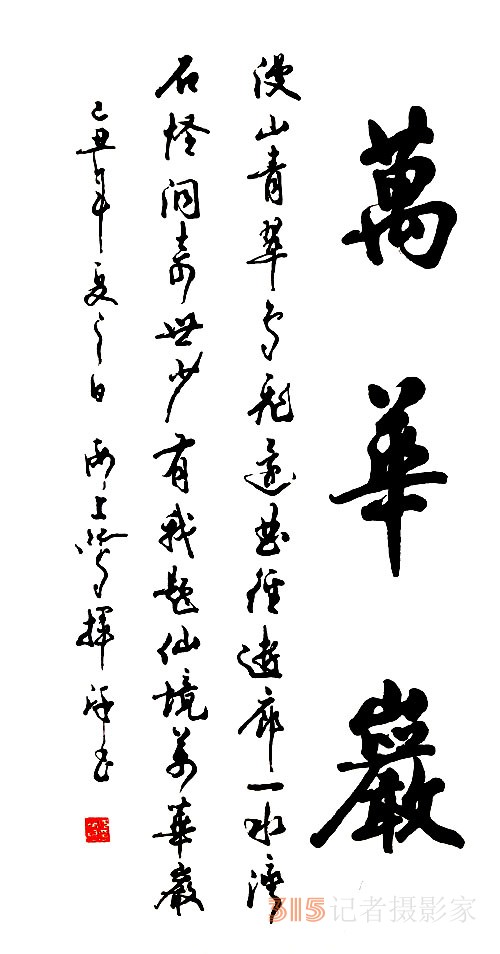 萬華巖
漫山青翠鳥飛還曲徑廊一水灣
石怪洞奇世少有我題仙境萬華巖
己丑年夏之日 上揮書
315记者摄影家